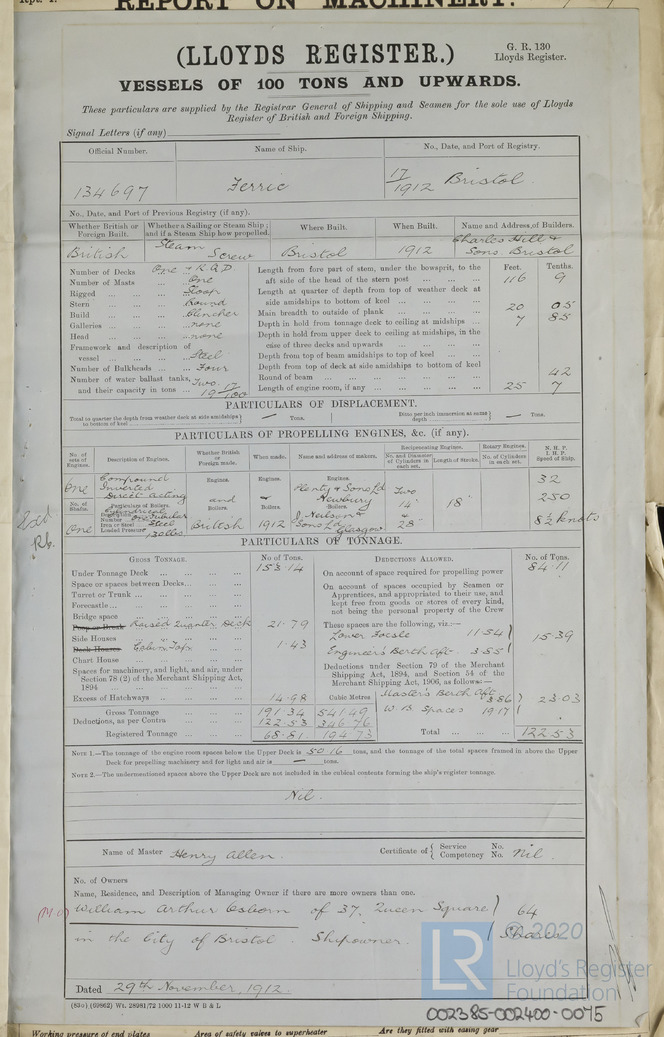 Rpt. 1.
REPORT ON MACHINERY.
(LLOYDS REGISTER.)
G. R. 130
Lloyds Register.
VESSELS OF 100 TONS AND UPWARDS.
These particulars are supplied by the Registrar General of Shipping and Seamen for the sole use of Lloyds
Register of British and Foreign Shipping.
Signal Letters (if any)
Official Number. Name of Ship. No., Date, and Port of Registry.
134697 Ferric 17/1912 Bristol.
No., Date, and Port of Previous Registry (if any).
Whether British or Foreign Built. Whether a Sailing or Steam Ship; and if a Steam Ship how propelled. Where Built. When Built. Name and Address of Builders.
British Steam Screw Bristol 1912 Charles Hill & Sons. Bristol
Number of Decks One & R Q D
Number of Masts One
Rigged Sloop
Stern Round
Build Clencher
Galleries none
Head none
Framework and description of
vessel Steel
Number of Bulkheads Four
Number of water ballast tanks, Two
and their capacity in tons 19 17/100
Feet. Tenths.
Length from fore part of stem, under the bowsprit, to the
aft side of the head of the stern post 116 9
Length at quarter of depth from top of weather deck at
side amidships to bottom of keel
Main breadth to outside of plank 20 05
Depth in hold from tonnage deck to ceiling at midships 7 85
Depth in hold from upper deck to ceiling at midships, in the
case of three decks and upwards
Depth from top of beam amidships to top of keel
Depth from top of deck at side amidships to bottom of keel
Round of beam 42
Length of engine room, if any 25 7
PARTICULARS OF DISPLACEMENT.
Total to quarter the depth from weather deck at side amidships to bottom of keel — Tons.
Ditto per inch immersion at same depth — Tons.
PARTICULARS OF PROPELLING ENGINES, &c. (if any).
No. of sets of Engines. Description of Engines. Whether British or Foreign made. When made. Name and address of makers. Reciprocating Engines. Rotary Engines. N. H. P. I. H. P. Speed of Ship.
No. and Diameter of Cylinders in each set. Length of Stroke. No. of Cylinders in each set.
One Compound Inverted Direct Acting
Engines. Engines. Engines.
and & Plenty & Sons Ld Newbury Two 14" 18" 32
250
No. of Shafts. Particulars of Boilers.
Description
Number
Iron or Steel Steel
Loaded Pressure 130 lbs.
One
Boilers. Boilers. Boilers.
British 1912 J. Neilson & Sons Ld Glasgow 28" 8½ knots
PARTICULARS OF TONNAGE.
GROSS TONNAGE. No of Tons.
Under Tonnage Deck 153.14
Space or spaces between Decks
Turret or Trunk
Forecastle
Bridge space
Poop or Break Raised Quarter Deck 21.79
Side Houses
Deck Houses Cabin Top 1.43
Chart House
Spaces for machinery, and light, and air, under
Section 78 (2) of the Merchant Shipping Act,
1894
Excess of Hatchways 14.98 Cubic Metres
Gross Tonnage 191.34 541.49
Deductions, as per Contra 122.53 346.76
Registered Tonnage 68.81 194.73
DEDUCTIONS ALLOWED. No. of Tons.
On account of space required for propelling power 84.11
On account of spaces occupied by Seamen or
Apprentices, and appropriated to their use, and
kept free from goods or stores of every kind,
not being the personal property of the Crew
These spaces are the following, viz.:—
Lower Focsle 11.54
Engineer's Berth aft 3.85 15.39
Deductions under Section 79 of the Merchant
Shipping Act, 1894, and Section 54 of the
Merchant Shipping Act, 1906, as follows:—
Master's Berth aft 3.86
W. B. Spaces 19.17 23.03
Total 122.53
NOTE 1.—The tonnage of the engine room spaces below the Upper Deck is 50.16 tons, and the tonnage of the total spaces framed in above the Upper
Deck for propelling machinery and for light and air is — tons.
NOTE 2.—The undermentioned spaces above the Upper Deck are not included in the cubical contents forming the ship's register tonnage.
Nil.
Name of Master Henry Allen. Certificate of { Service No. Competency No. Nil
No. of Owners
Name, Residence, and Description of Managing Owner if there are more owners than one.
William Arthur Osborn of 37, Queen Square 64
in the City of Bristol. Shipowner. Shares
Dated 29th November, 1912.
(83o) (69862) Wt. 28981/72 1000 11-12 W B & L
LR
© 2020
Lloyd's Register
Foundation
002385-002400-0075
Working pressure of end plates Area of safety valves to superheater Are they fitted with easing gear